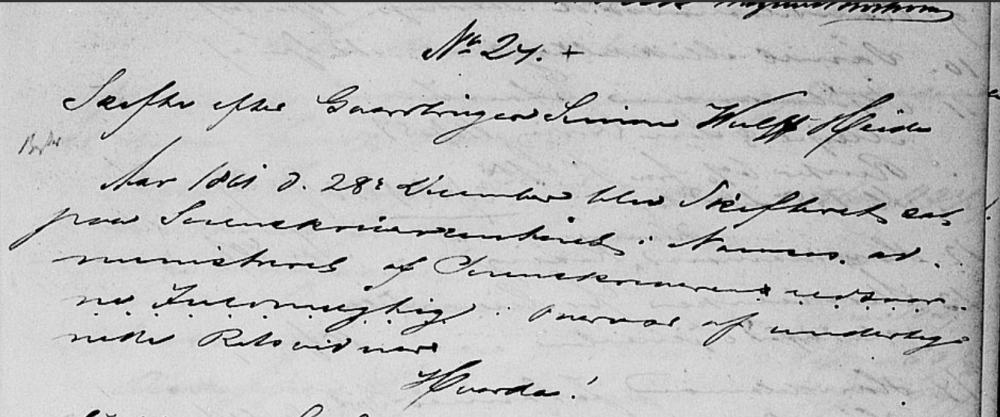 No 24. +
Skifte efter Gaardbruger Simon Wulff Heide
Aar 1861 d. 28de December blev Skifteret sat
paa Sorenskriverkontoret i Namsos, ad-
ministreret af Sorenskriverens edsvor-
ne Fuldmægtig overvær af underteg-
nede Retsvidner
Hvorda!